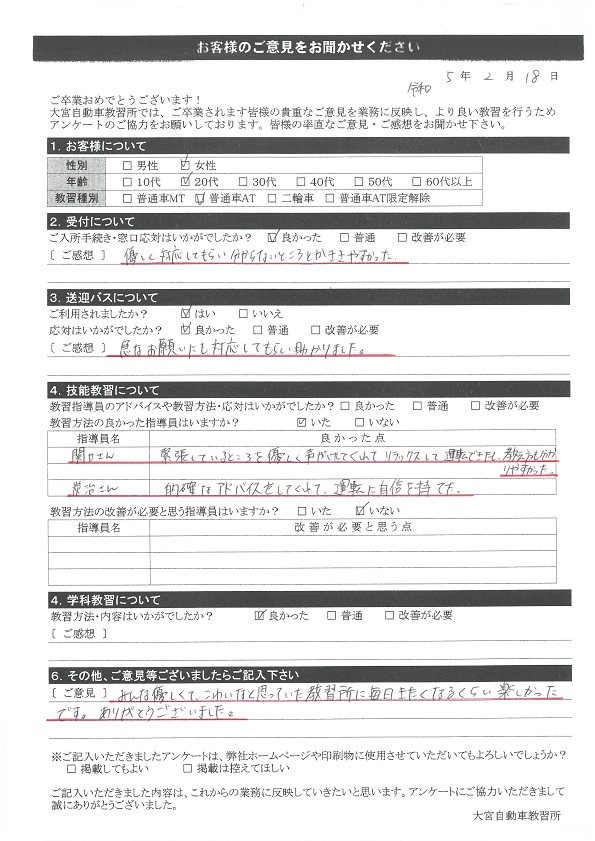 お客様のご意見をお聞かせください
令和 5年 2月 18日
ご卒業おめでとうございます！
大宮自動車教習所では、ご卒業されます皆様の貴重なご意見を業務に反映し、より良い教習を行うため
アンケートのご協力をお願いしております。皆様の率直なご意見・ご感想をお聞かせ下さい。
1. お客様について
性別 □ 男性 ☑ 女性
年齢 □ 10代 ☑ 20代 □ 30代 □ 40代 □ 50代 □ 60代以上
教習種別 □ 普通車MT ☑ 普通車AT □ 二輪車 □ 普通車AT限定解除
2. 受付について
ご入所手続き・窓口応対はいかがでしたか？ ☑ 良かった □ 普通 □ 改善が必要
〔 ご感想 〕 優しく対応してもらい分からないところとかききやすかった。
3. 送迎バスについて
ご利用されましたか？ ☑ はい □ いいえ
応対はいかがでしたか？ ☑ 良かった □ 普通 □ 改善が必要
〔 ご感想 〕 急なお願いにも対応してもらい助かりました。
4. 技能教習について
教習指導員のアドバイスや教習方法・応対はいかがでしたか？ □ 良かった □ 普通 □ 改善が必要
教習方法の良かった指導員はいますか？ ☑ いた □ いない
指導員名 良かった点
関口さん 緊張しているところを優しく声かけしてくれて リラックスして運転できたし、教え方も分か
りやすかった。
さん 的確なアドバイスをしてくれて、運転に自信を持てた。
教習方法の改善が必要と思う指導員はいますか？ □ いた ☑ いない
指導員名 改善が必要と思う点
4. 学科教習について
教習方法・内容はいかがでしたか？ ☑ 良かった □ 普通 □ 改善が必要
〔 ご感想 〕
6. その他、ご意見等ございましたらご記入下さい
〔 ご意見 〕 みんな優しくて、こわいなと思っていた教習所に毎日きたくなるくらい 楽しかった
です。ありがとうございました。
※ご記入いただきましたアンケートは、弊社ホームページや印刷物に使用させていただいてもよろしいでしょうか？
□ 掲載してもよい □ 掲載は控えてほしい
ご記入いただきました内容は、これからの業務に反映していきたいと思います。アンケートにご協力いただきまして
誠にありがとうございました。
大宮自動車教習所